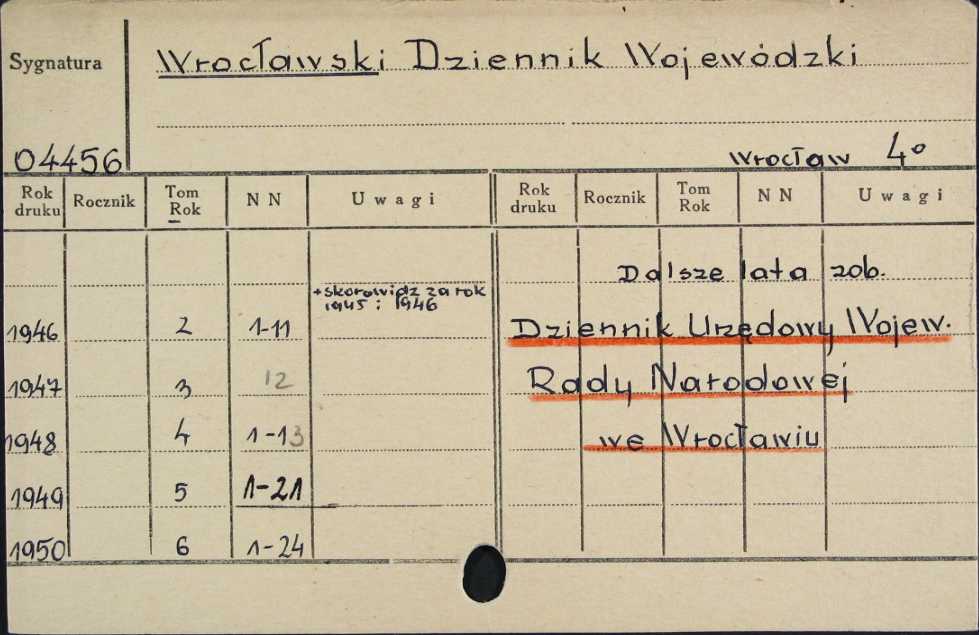 Sygnatura
Wrocławski Dziennik Wojewódzki
04456
Wrocław 4°
Rok druku Rocznik Tom Rok N N U w a g i Rok druku Rocznik Tom Rok N N U w a g i
Dalsze lata zob.
+skorowidz za rok
1945 i 1946
1946 2 1-11
Dziennik Urzędowy Wojew.
1947 3 12
Rady Narodowej
1948 4 1-13
we Wrocławiu
1949 5 1-21
1950 6 1-24